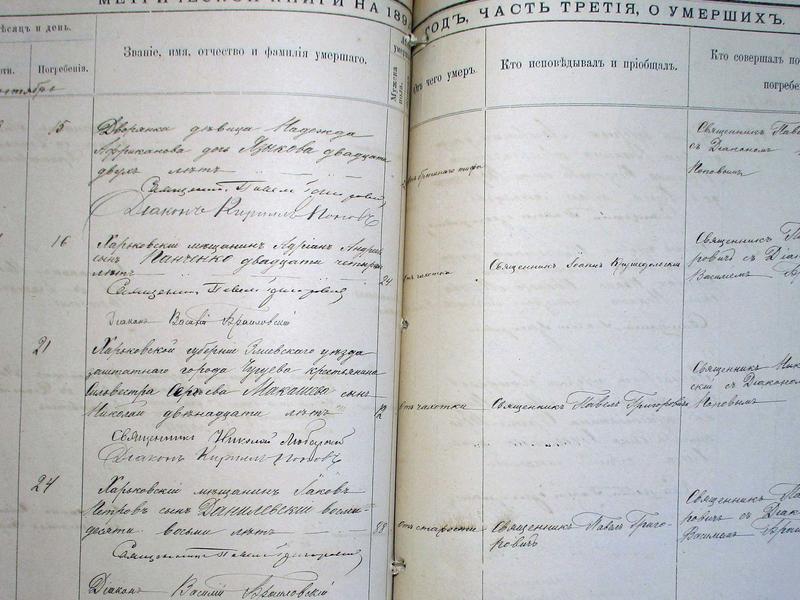 МЕТРИЧЕСКОЙ КНИГИ НА 189
ГОДЪ, ЧАСТЬ ТРЕТІЯ, О УМЕРШИХЪ.
и день.
Погребенія.
Званіе, имя, отчество и фамилія умершаго.
Мужеска пола.
Отъ чего умеръ.
Кто исповѣдывалъ и пріобщалъ.
Кто совершалъ по
погребе
15
Дворянка дѣвица Надежда
Африканова дочь Языкова двадцати
двухъ лѣтъ
Священникъ Павелъ Григоровичъ
Діаконъ Кириллъ Поповъ
брюшнаго тифа
Священникъ
съ Діакономъ
Поповымъ
16
Харьковскій мѣщанинъ Адріанъ
сынъ Панченко двадцати четырехъ
лѣтъ
24
Священникъ Павелъ Григоровичъ
Діаконъ Василій
отъ чахотки
Священникъ Іоаннъ
Священникъ
ровичъ съ
Василіемъ
21
Харьковской губерніи Зміевского уѣзда
заштатнаго города Чугуева крестьянина
Силовестра Сергѣева Макашева сынъ
Николай двѣнадцати лѣтъ
12
Священникъ Николай
Діаконъ Кириллъ Поповъ
отъ чахотки
Священникъ Павелъ Григоровичъ
Священникъ
скій съ Діакономъ
Поповымъ
24
Харьковскій мѣщанинъ Іаковъ
Петровъ сынъ Данилевскій восми-
десяти восьми лѣтъ
88
Священникъ Павелъ Григоровичъ
Діаконъ Василій
отъ старости
Священникъ Павелъ Григо-
ровичъ
Священникъ
ровичъ съ
Василіемъ